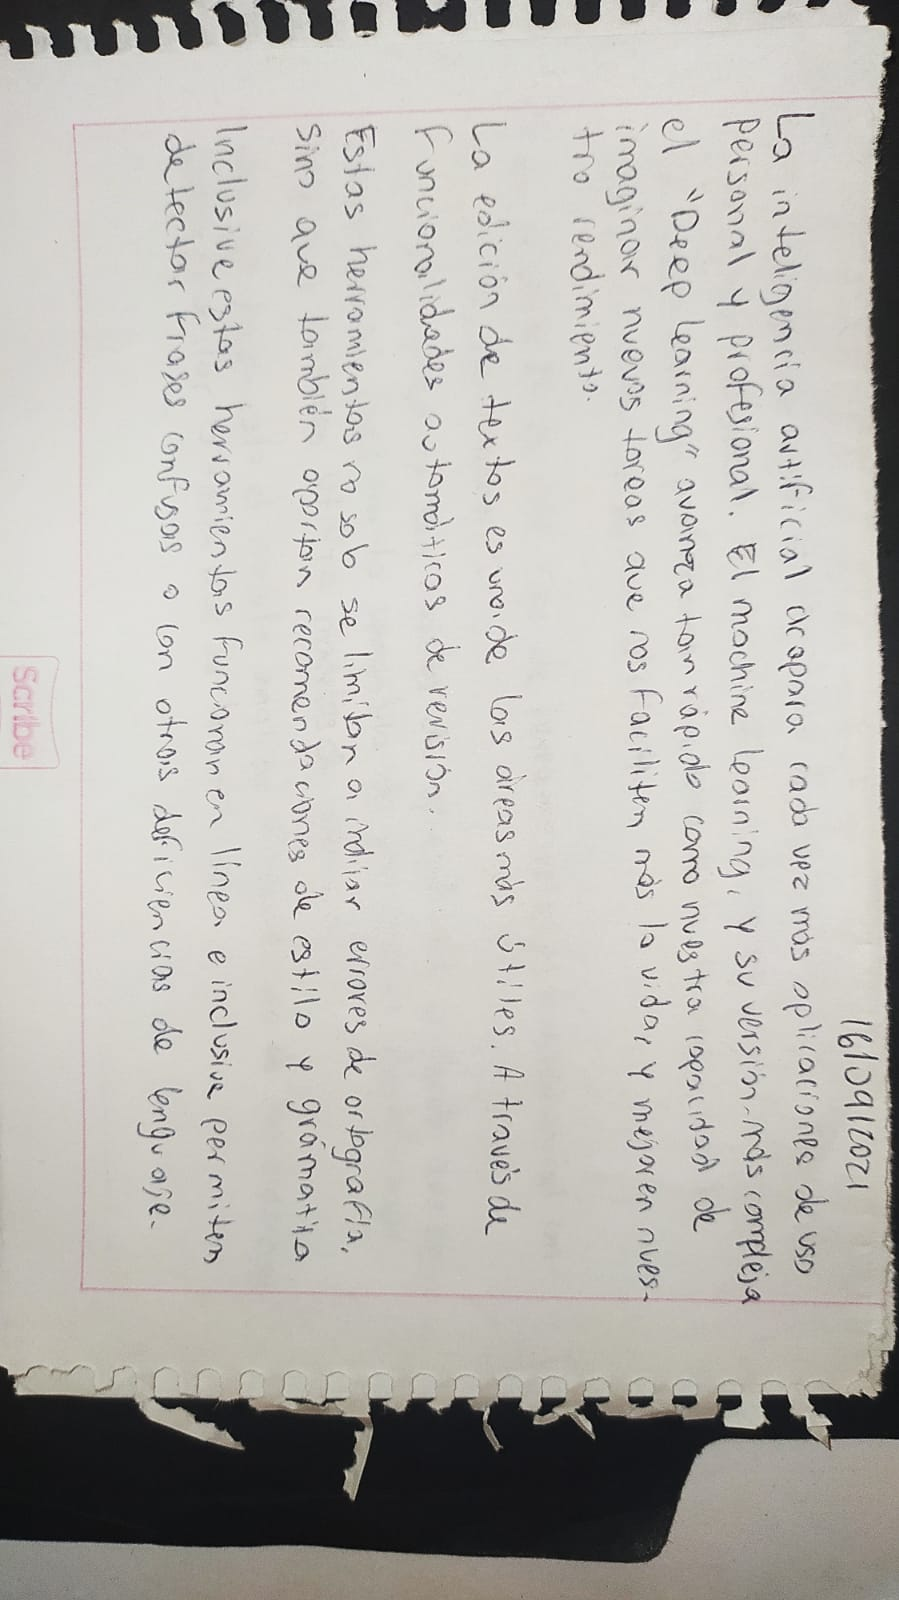 16/09/2021
La inteligencia artificial acapara cada vez más aplicaciones de uso
personal y profesional. El machine learning, y su versión más compleja
el "Deep learning" avanza tan rápido como nuestra capacidad de
imaginar nuevas tareas que nos faciliten más la vida, y mejoren nues-
tro rendimiento.
La edición de textos es una de las áreas más útiles. A través de
funcionalidades automáticas de revisión.
Estas herramientas no solo se limitan a indicar errores de ortografía,
sino que también aportan recomendaciones de estilo y grámatica
Inclusive estas herramientas funcionan en línea e inclusive permiten
detectar frases confusas o con otras deficiencias de lenguaje.
Scribe